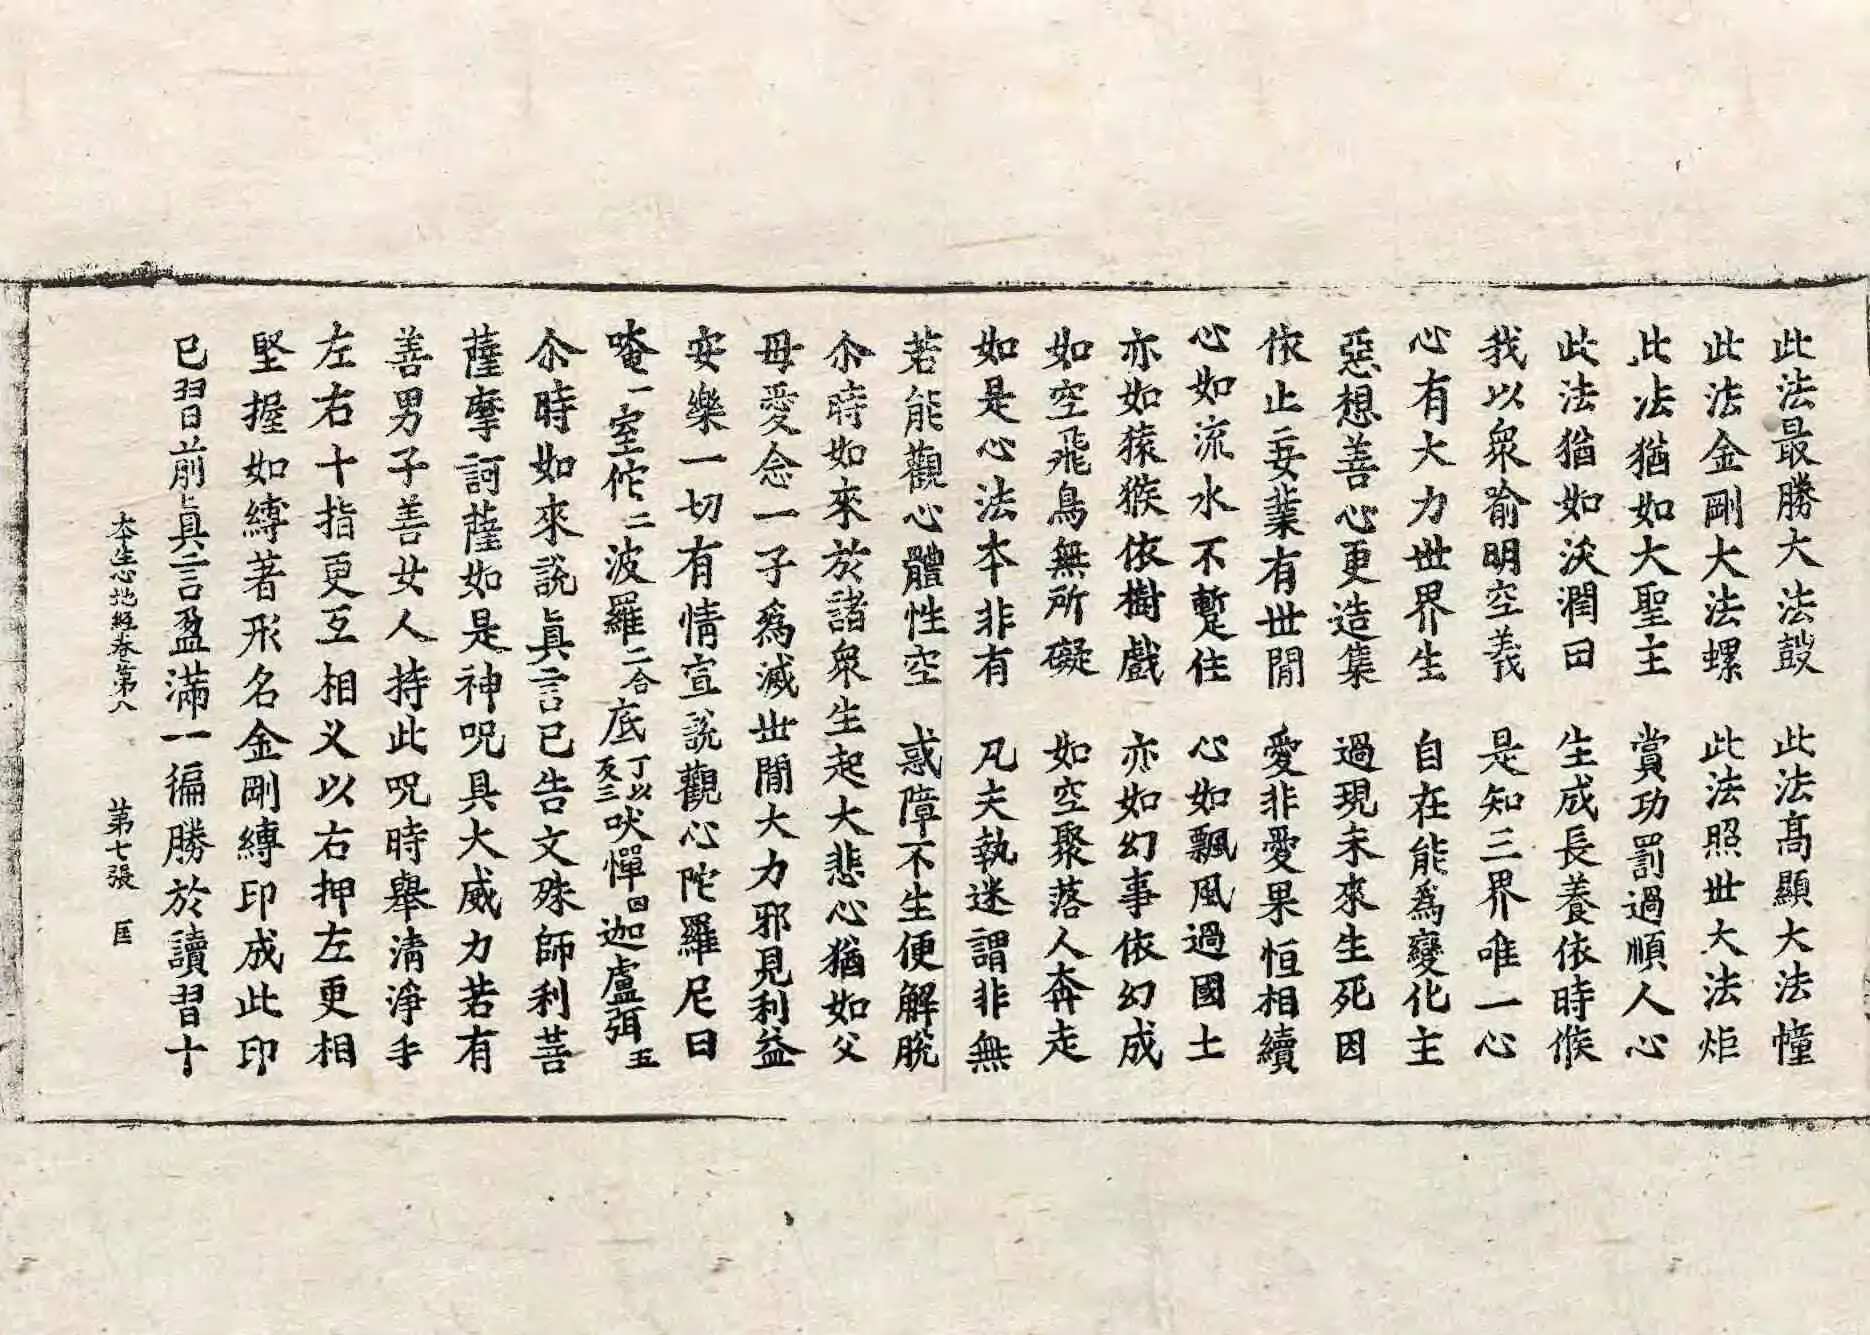 此法最勝大法鼓　此法高顯大法幢
此法金剛大法螺　此法照世大法炬
此法猶如大聖主　賞功罰過順人心
此法猶如沃潤田　生成長養依時候
我以衆喻明空義　是知三界唯一心
心有大力世界生　自在能爲變化主
惡想善心更造集　過現未來生死因
依止妄業有世閒　愛非愛果恒相續
心如流水不暫住　心如飄風過國土
亦如猿猴依樹戲　亦如幻事依幻成
如空飛鳥無所礙　如空聚落人奔走
如是心法本非有　凡夫執迷謂非無
若能觀心體性空　惑障不生便解脫
尒時如來於諸衆生起大悲心猶如父
母愛念一子爲滅世閒大力邪見利益
安樂一切有情宣說觀心陀羅尼曰
唵一室佗二波羅二合底丁以反三吠憚四迦盧弭五
尒時如來說眞言已告文殊師利菩
薩摩訶薩如是神呪具大威力若有
善男子善女人持此呪時舉淸淨手
左右十指更互相叉以右押左更相
堅握如縛著形名金剛縛印成此印
已習前眞言盈滿一徧勝於讀習十
本生心地經卷第八　第七張　匡